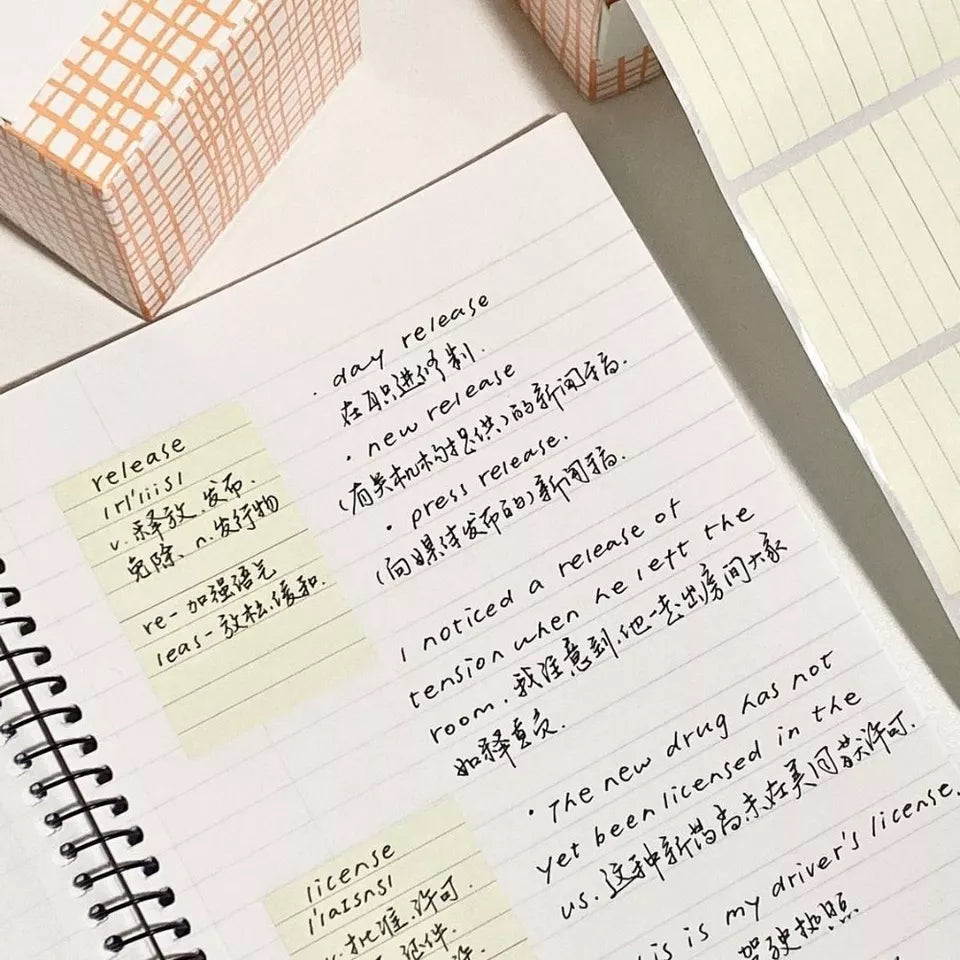 release
/rɪ'liːs/
v. 释放、发布.
免除、n.发行物
re- 加强语气
leas- 放松、缓和.
· day release
在职进修制.
· new release
(有关机构提供)的新闻稿.
· press release.
(向媒体发布的)新闻稿.
I noticed a release of
tension when he left the
room. 我注意到,他一走出房间大家
如释重负.
license
/'laɪsns/
v. 批准、许可.
证件.
· The new drug has not
yet been licensed in the
us. 这种新药尚未在美国获许可.
is is my driver's license.
驾驶执照